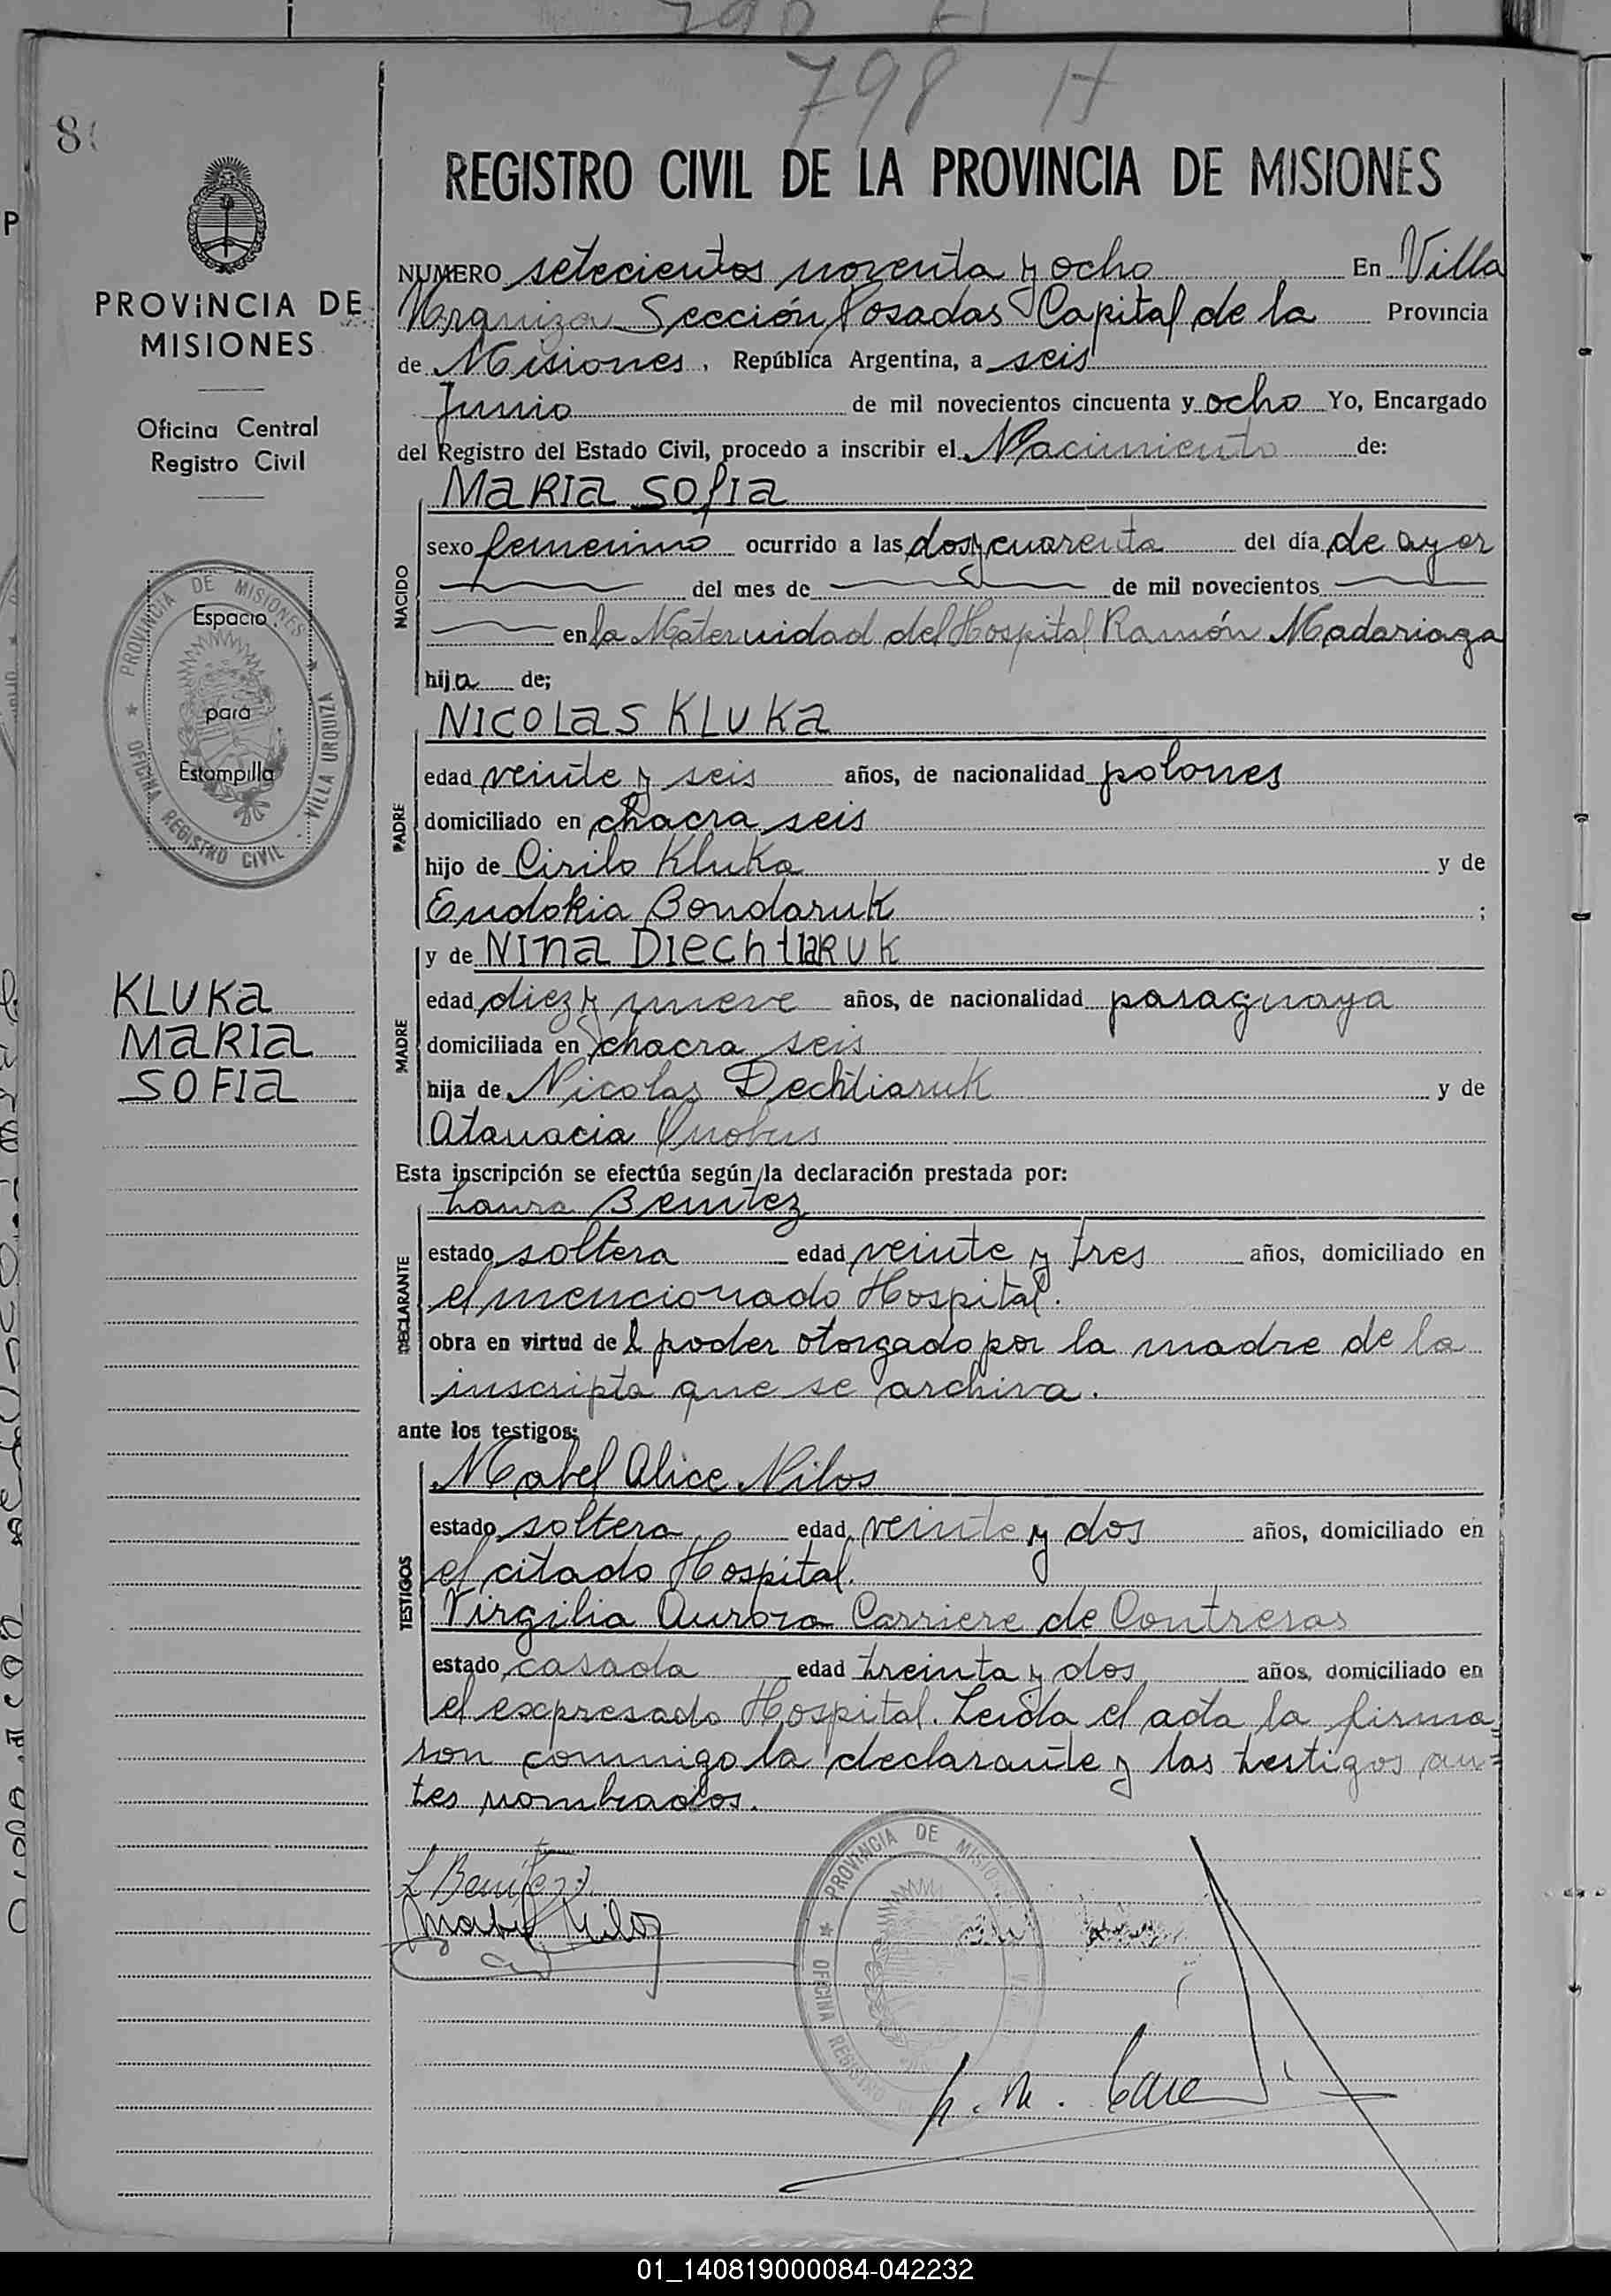 798 H
8
REGISTRO CIVIL DE LA PROVINCIA DE MISIONES
PROVINCIA DE
MISIONES
Oficina Central
Registro Civil
PROVINCIA DE MISIONES
OFICINA REGISTRO CIVIL
VILLA URQUIZA
Espacio
para
Estampilla
KLUKA
MARIA
SOFIA
NUMERO setecientos noventa y ocho En Villa
Urquiza Sección Posadas Capital de la Provincia
de Misiones, República Argentina, a seis
Junio de mil novecientos cincuenta y ocho Yo, Encargado
del Registro del Estado Civil, procedo a inscribir el Nacimiento de:
NACIDO
MARIA SOFIA
sexo femenino ocurrido a las dos y cuarenta del día de ayer
del mes de de mil novecientos
en la Maternidad del Hospital Ramón Madariaga
hija de;
PADRE
NICOLAS KLUKA
edad veinte y seis años, de nacionalidad polones
domiciliado en chacra seis
hijo de Cirilo Kluka y de
Eudokia Bondaruk ;
MADRE
y de NINA DIECHTIARUK
edad diez y nueve años, de nacionalidad paraguaya
domiciliada en chacra seis
hija de Nicolas Dechtiaruk y de
Atanacia
Esta inscripción se efectúa según la declaración prestada por:
DECLARANTE
Laura Benitez
estado soltera edad veinte y tres años, domiciliado en
el mencionado Hospital.
obra en virtud del poder otorgado por la madre de la
inscripta que se archiva.
ante los testigos:
TESTIGOS
Mabel Alice Nilos
estado soltera edad veinte y dos años, domiciliado en
el citado Hospital.
Virgilia Aurora Carriere de Contreras
estado casada edad treinta y dos años, domiciliado en
el expresado Hospital. Leida el acta la firma=
ron conmigo la declarante y los testigos an=
tes nombrados.
L Benitez
Mabel Nilos
PROVINCIA DE MISIONES
OFICINA REGISTRO
01_140819000084-042232